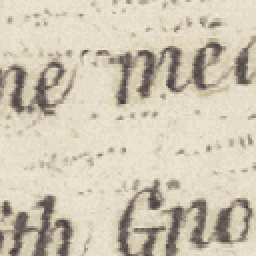 ne mea
ith Gno